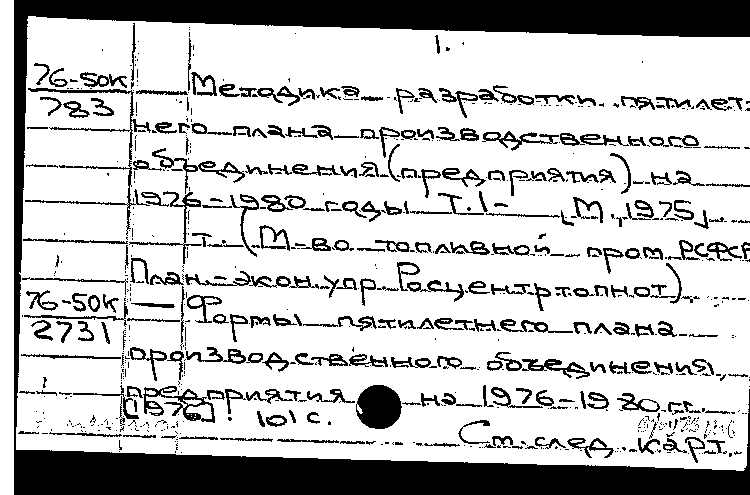 1.
76-50к Методика разработки пятилет-
783 него плана производственного
объединения (предприятия) на
1976-1980 годы Т.1- [М., 1975].
т. (М-во топливной пром. РСФСР
План.-экон. упр. Росцентртопнот).
76-50к — Формы пятилетнего плана
2731 производственного объединения,
предприятия на 1976-1980 гг.
[1976]. 101 с.
См. след. карт.